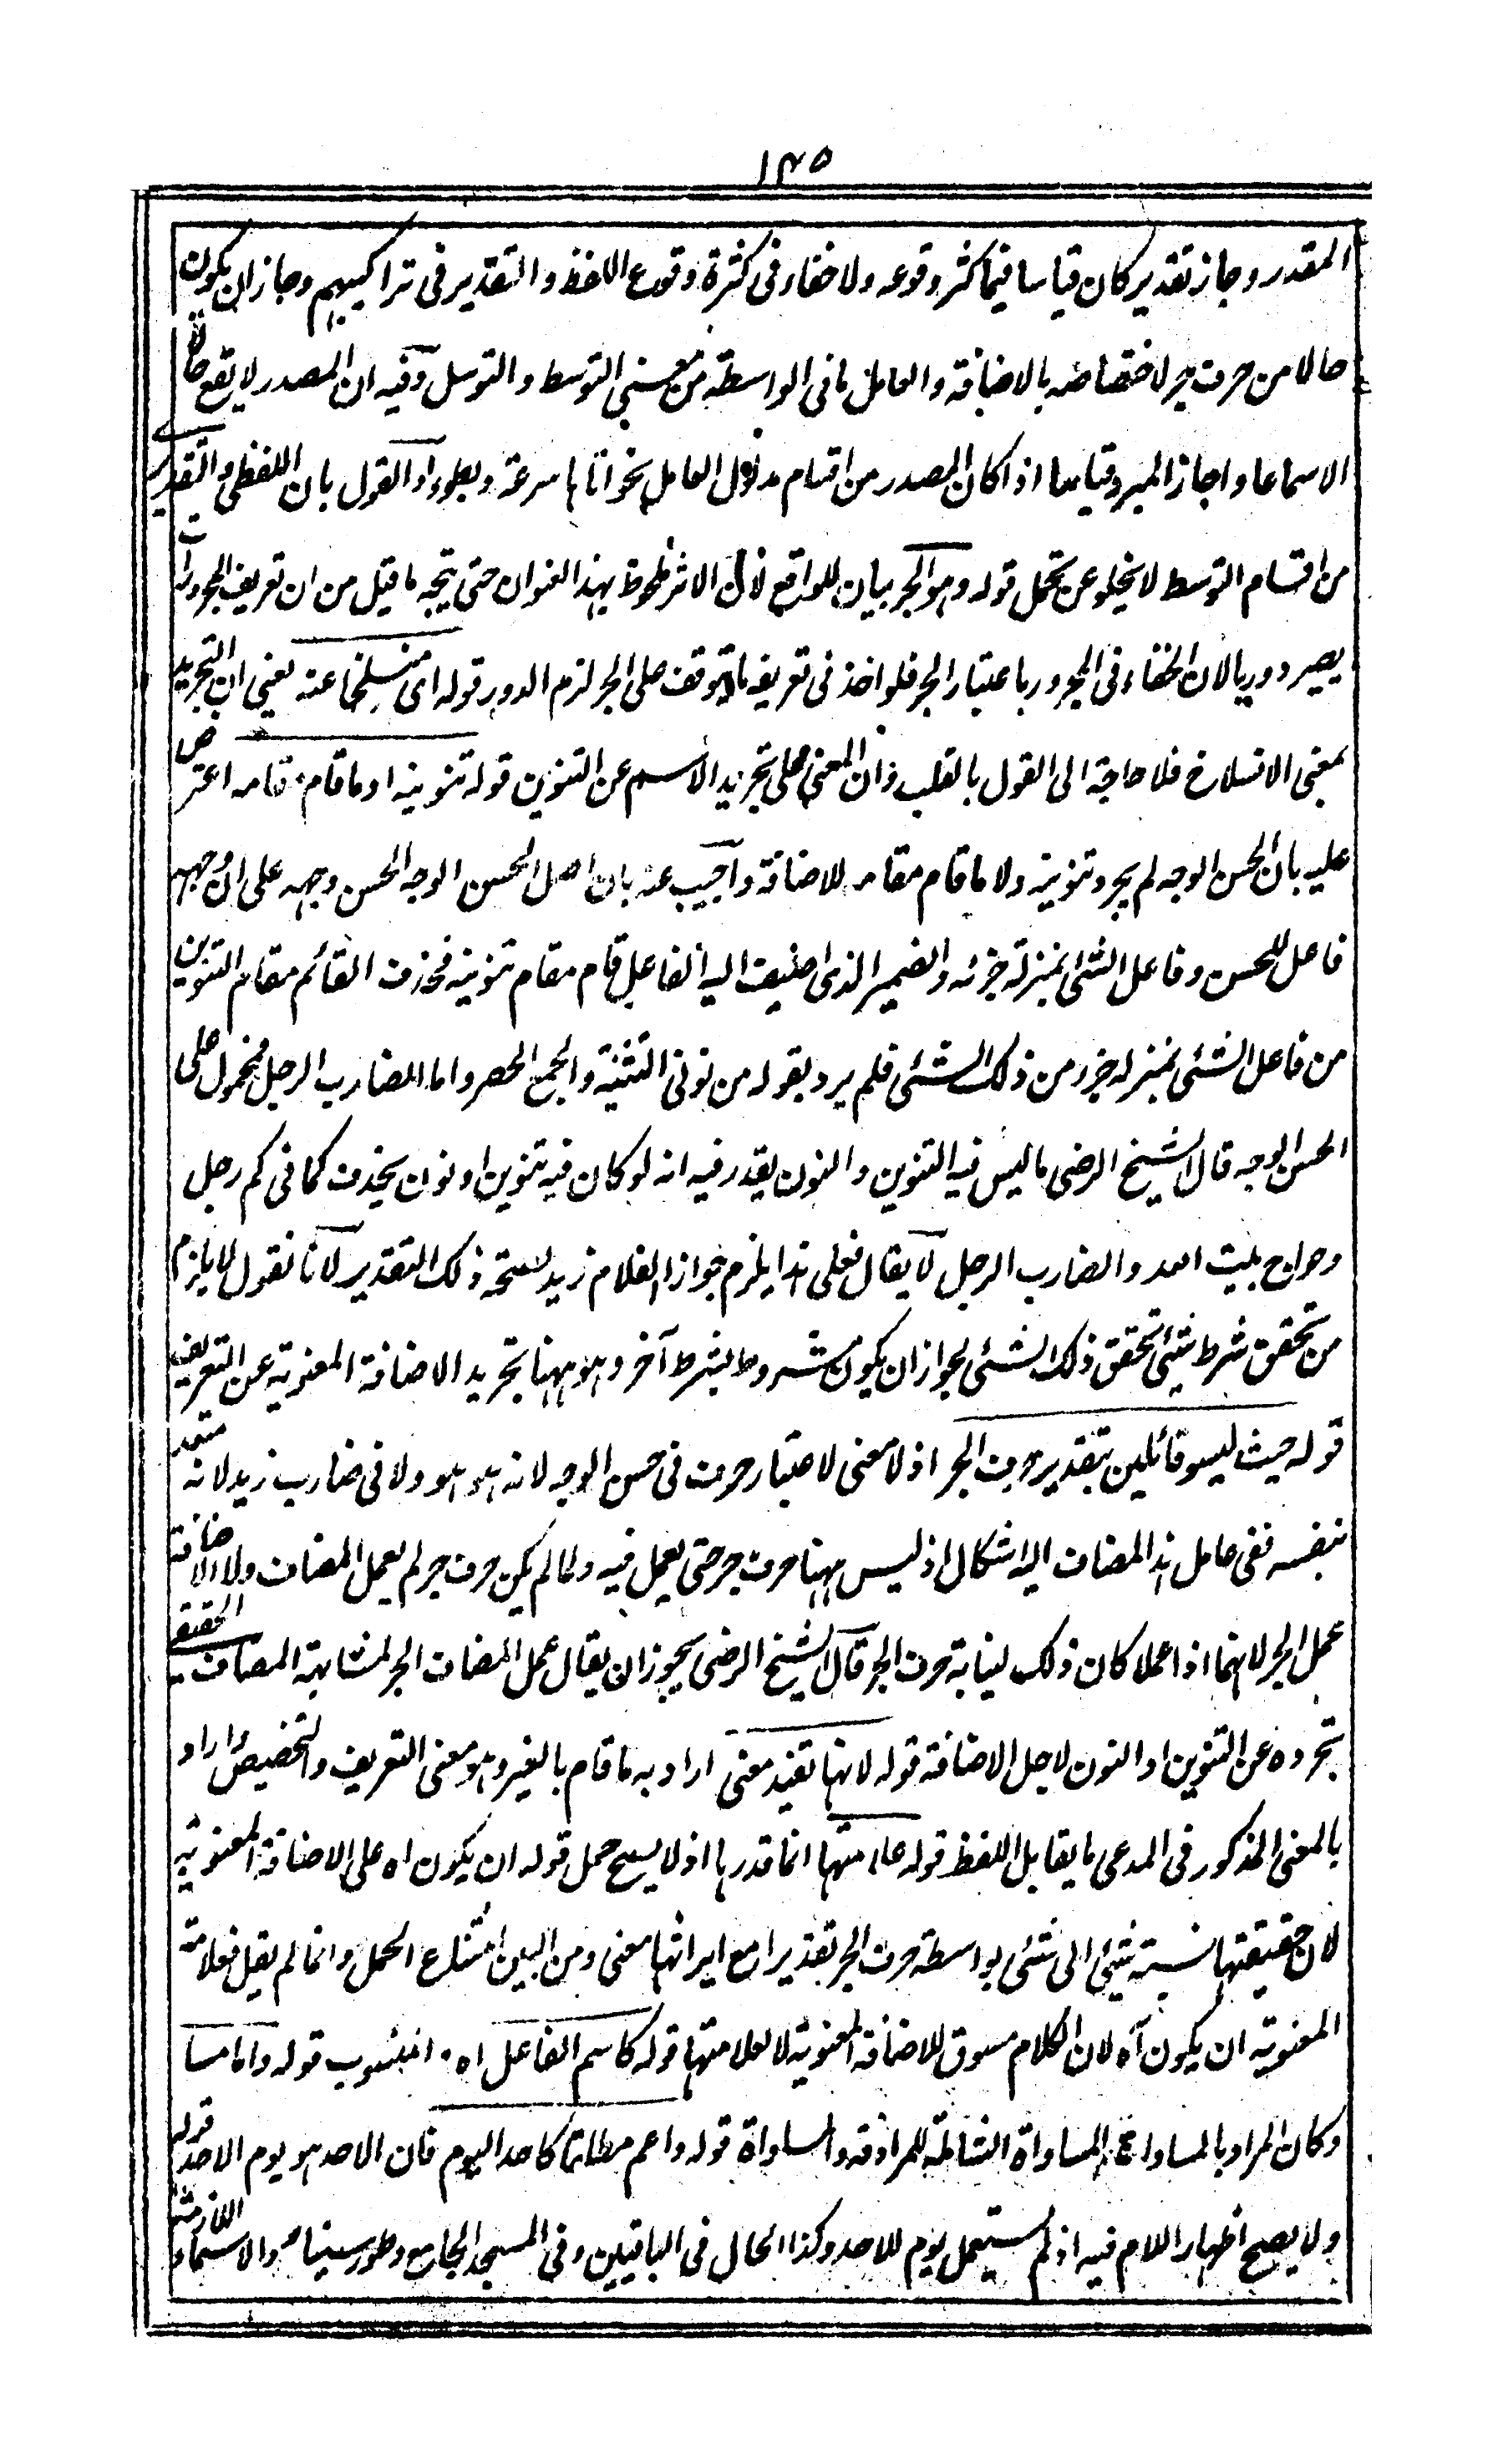 ١٣٥
المقدر وجاز تقدير كان قياسا فيما كثر وقوعه ولا خفاء فى كثرة وقوع اللفظ والتقدير فى تراكيبهم وجاز ان يكون
حالا من حرف جر لاختصاصه بالاضافة والعامل ما فى الواسطة من معنى التوسط والتوسل وفيه ان المصدر لا يقع حالا
الا سماعا واجاز المبرد قياسا اذا كان المصدر من اقسام مدلول العامل نحو اتانا سرعة وبطوء او القول بان اللفظى والتقديرى
من اقسام التوسط لا يخلو عن تحمل قوله وهو الجر بيان للواقع لان الاثر ملحوظ بهذا العنوان حتى يتجه ما قيل من ان تعريف المجرورات
يصير دوريا لان الخفاء فى المجرور باعتبار الجر فلو اخذ فى تعريفه ما يتوقف على الجر لزم الدور قوله اى منسلخا عنه يعنى ان التجريد
بمعنى الانسلاخ فلا حاجة الى القول بالقلب فان المعنى على تجريد الاسم عن التنوين قوله تنوينه او ما قام مقامه اعترض
عليه بان الحسن الوجه لم يجرد تنوينه ولا ما قام مقامه للاضافة واجيب عنه بان اصل الحسن الوجه الحسن وجهه على ان وجهه
فاعل للحسن وفاعل الشئ بمنزلة جزئه والضمير الذى اضيف اليه الفاعل قام مقام تنوينه فحذف القائم مقام التنوين
من فاعل الشئ بمنزلة جزء من ذلك الشئ فلم يرد بقوله من نونى التثنية والجمع الحصر واما الضارب الرجل فمحمول على
الحسن الوجه قال الشيخ الرضى ما ليس فيه التنوين والنون يقدر فيه انه لو كان فيه تنوين او نون يحذف كما فى كم رجل
وحواج بيت الله والضارب الرجل لا يقال فعلى هذا يلزم جواز الغلام زيد لصحة ذلك التقدير لانا نقول لا يلزم
من تحقق شرط شئ تحقق ذلك الشئ لجواز ان يكون مشروطا بشرط آخر وهو ههنا تجريد الاضافة المعنوية عن التعريف
قوله حيث ليسوا قائلين بتقدير حرف الجر اذ لا معنى لاعتبار حرف فى حسن الوجه لانه هو هو ولا فى ضارب زيد لانه متعد
بنفسه ففى عامل هذا المضاف اليه اشكال اذ ليس ههنا حرف جر حتى يعمل فيه ولما لم يكن حرف جر لم يعمل المضاف ولا الاضافة
عمل الجر لانهما اذا عملا كان ذلك لنيابة حرف الجر قال الشيخ الرضى يجوز ان يقال عمل المضاف الجر لمشابهة المضاف الحقيقى
بتجرده عن التنوين او النون لاجل الاضافة قوله لانها تفيد معنى اراد به ما قام بالغير وهو معنى التعريف والتخصيص اراد
بالمعنى المذكور فى المدعى ما يقابل اللفظ قوله علامتها انما قدرها اذ لا يصح حمل قوله ان يكون اه على الاضافة المعنوية
لان حقيقتها نسبة شئ الى شئ بواسطة حرف الجر تقديرا مع ايراثها معنى ومن البين امتناع الحمل وانما لم يقل فعلامة
المعنوية ان يكون آه لان الكلام مسوق للاضافة المعنوية لا لعلامتها قوله كاسم الفاعل اه قوله واما مساو
وكان المراد بالمساواة المساواة الشاملة للمرادفة والمساواة قوله واعم مطلقا كاحد اليوم فان الاحد هو يوم الاحد قوله
ولا يصح اظهار اللام فيه اذ لم يستعمل يوم للاحد وكذا الحال فى الباقيين وفى المسجد الجامع وطور سيناء والاسماء اللازمة